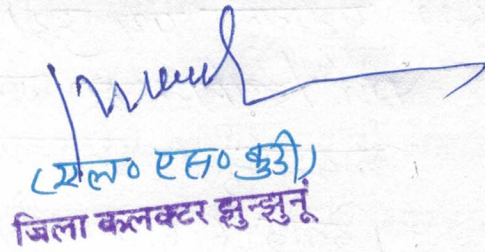 (एल० एस० कुडी)
जिला कलक्टर झुन्झुनूं